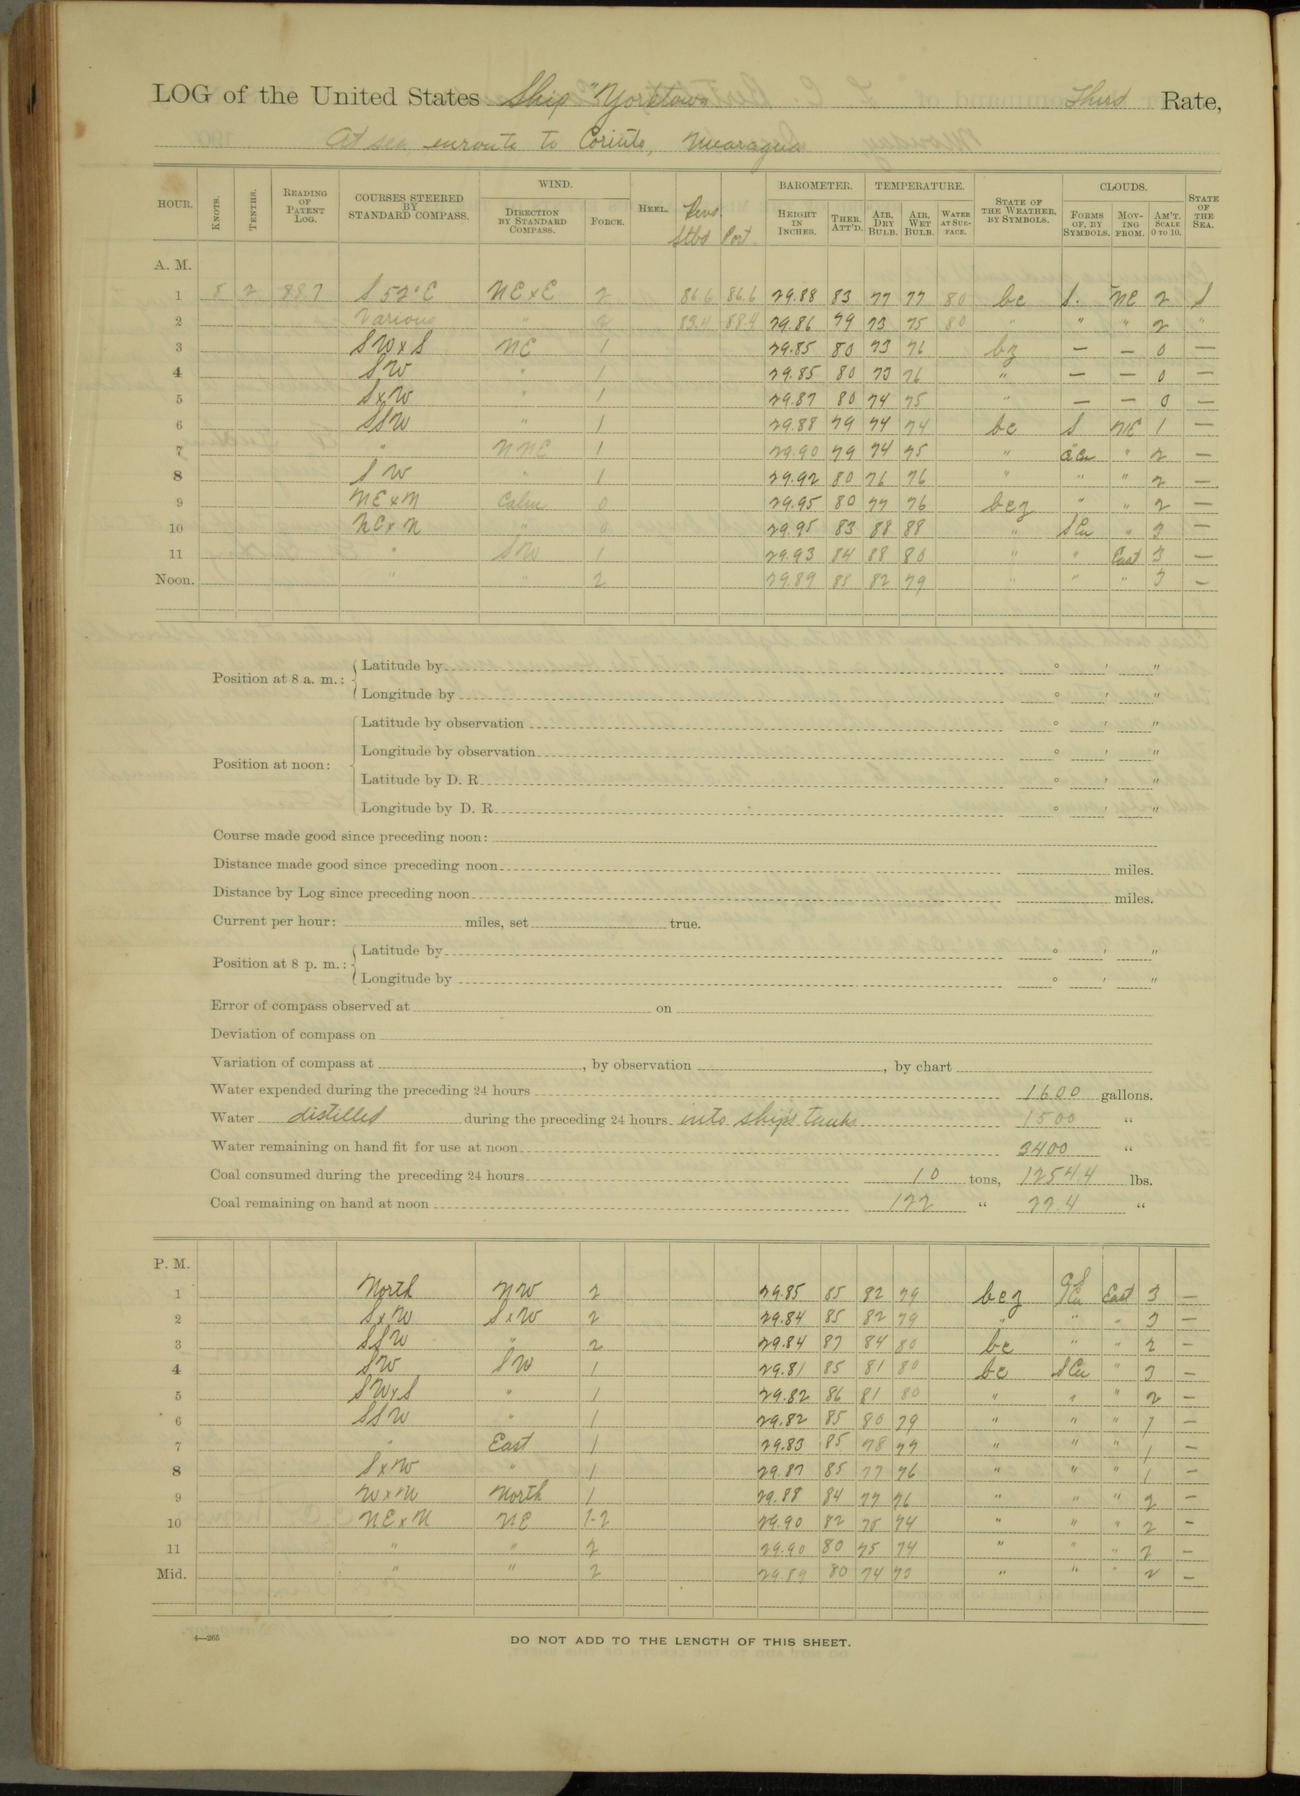 LOG of the United States Ship "Yorktown" Third Rate,
At sea enroute to Corinto, Nicaragua
HOUR. KNOTS. TENTHS. READING OF PATENT LOG. COURSES STEERED BY STANDARD COMPASS. WIND. DIRECTION BY STANDARD COMPASS. FORCE. HEEL. Revs. Stbd Port. BAROMETER. HEIGHT IN INCHES. THER. ATT'D. TEMPERATURE. AIR, DRY BULB. AIR, WET BULB. WATER AT SURFACE. STATE OF THE WEATHER, BY SYMBOLS. CLOUDS. FORMS OF, BY SYMBOLS. MOVING FROM. AM'T. SCALE 0 TO 10. STATE OF THE SEA.
A. M.
1 8 2 88 7 S 52° E NE x E 2 86.6 86.6 29.88 83 77 77 80 bc S. NE 2 S
2 Various " 2 83.4 88.4 29.86 79 73 75 80 " " " 2 "
3 SW x S NE 1 29.85 80 73 76 bz — — 0 —
4 SW " 1 29.85 80 73 76 " — — 0 —
5 S x W " 1 29.87 80 74 75 " — — 0 —
6 SSW " 1 29.88 79 74 74 bc S NE 1 —
7 " NNE 1 29.90 79 74 75 " a Cu " 2 —
8 SW " 1 29.92 80 76 76 " " " 2 —
9 NE x N Calm 0 29.95 80 77 76 bcz " " 2 —
10 NE x N " 0 29.95 83 88 88 " S Cu " 3 —
11 " SW 1 29.93 84 88 80 " " East 3 —
Noon. " " 2 29.89 85 82 79 " " " 3 —
Position at 8 a. m.: Latitude by ° ' "
Longitude by ° ' "
Position at noon: Latitude by observation ° ' "
Longitude by observation ° ' "
Latitude by D. R. ° ' "
Longitude by D. R. ° ' "
Course made good since preceding noon:
Distance made good since preceding noon miles.
Distance by Log since preceding noon miles.
Current per hour: miles, set true.
Position at 8 p. m.: Latitude by ° ' "
Longitude by ° ' "
Error of compass observed at on
Deviation of compass on
Variation of compass at , by observation , by chart
Water expended during the preceding 24 hours 1600 gallons.
Water distilled during the preceding 24 hours into ship's tanks 1500 "
Water remaining on hand fit for use at noon 3400 "
Coal consumed during the preceding 24 hours 10 tons, 1254.4 lbs.
Coal remaining on hand at noon 122 " 22.4 "
P. M.
1 North NW 2 29.85 85 82 79 bcz Cu East 3 —
2 S x W S x W 2 29.84 85 82 79 " " " 3 —
3 SSW " 2 29.84 87 84 80 bc " " 2 —
4 SW SW 1 29.81 85 81 80 bc S Cu " 3 —
5 SW x S " 1 29.82 86 81 80 " " " 2 —
6 SSW " 1 29.82 85 80 79 " " " 1 —
7 " East 1 29.83 85 78 77 " " " 1 —
8 S x W " 1 29.87 85 77 76 " " " 1 —
9 W x N North 1 29.88 84 77 76 " " " 2 —
10 NE x N NE 1-2 29.90 82 75 74 " " " 2 —
11 " " 2 29.90 80 75 74 " " " 2 —
Mid. " " 2 29.89 80 74 73 " " " 2 —
4—265
DO NOT ADD TO THE LENGTH OF THIS SHEET.